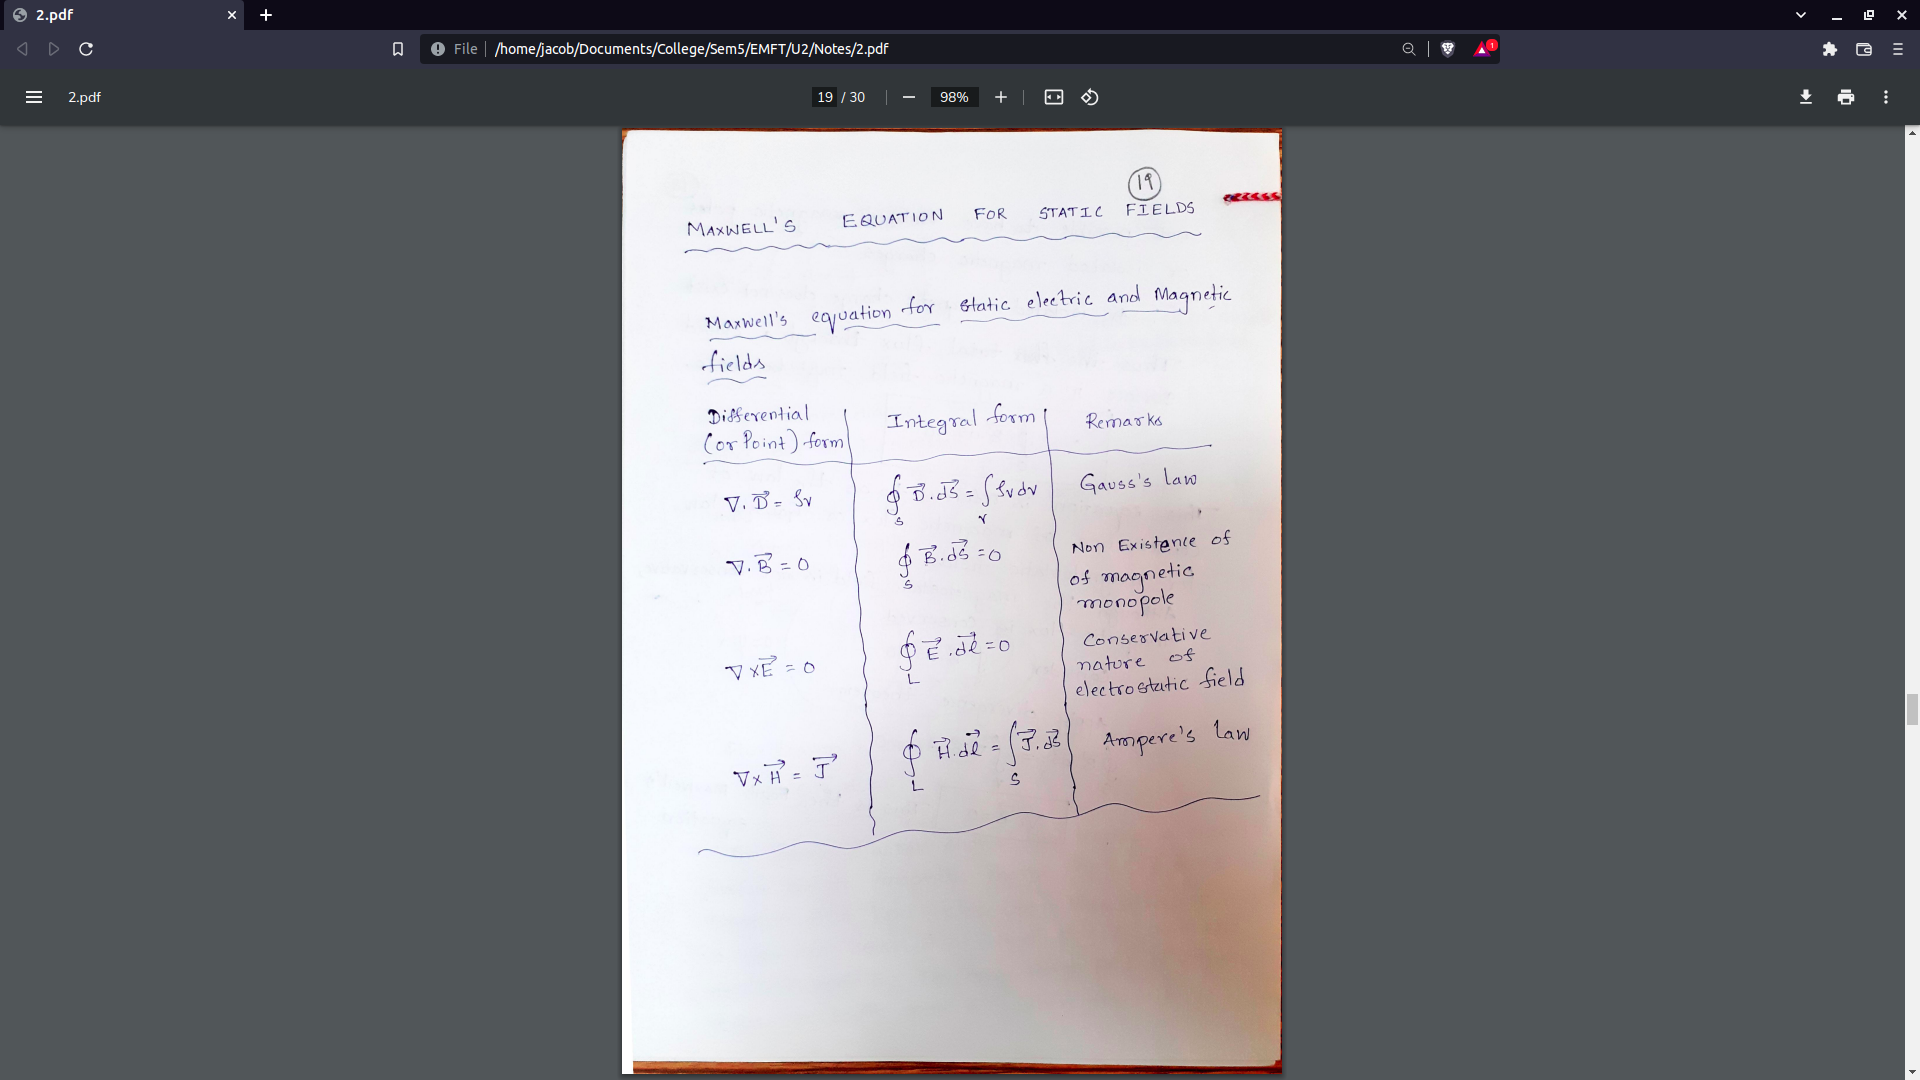 2.pdf
File /home/jacob/Documents/College/Sem5/EMFT/U2/Notes/2.pdf
1
2.pdf
19 / 30
98%
19
MAXWELL'S EQUATION FOR STATIC FIELDS
Maxwell's equation for static electric and Magnetic
fields
Differential
(or Point) form
Integral form
Remarks
∇.D⃗ = ρv
∮S D⃗.dS⃗ = ∫v ρv dv
Gauss's law
∇.B⃗ = 0
∮S B⃗.dS⃗ = 0
Non Existence of
of magnetic
monopole
∇×E⃗ = 0
∮L E⃗.dl⃗ = 0
Conservative
nature of
electrostatic field
∇×H⃗ = J⃗
∮L H⃗.dl⃗ = ∫S J⃗.dS⃗
Ampere's law